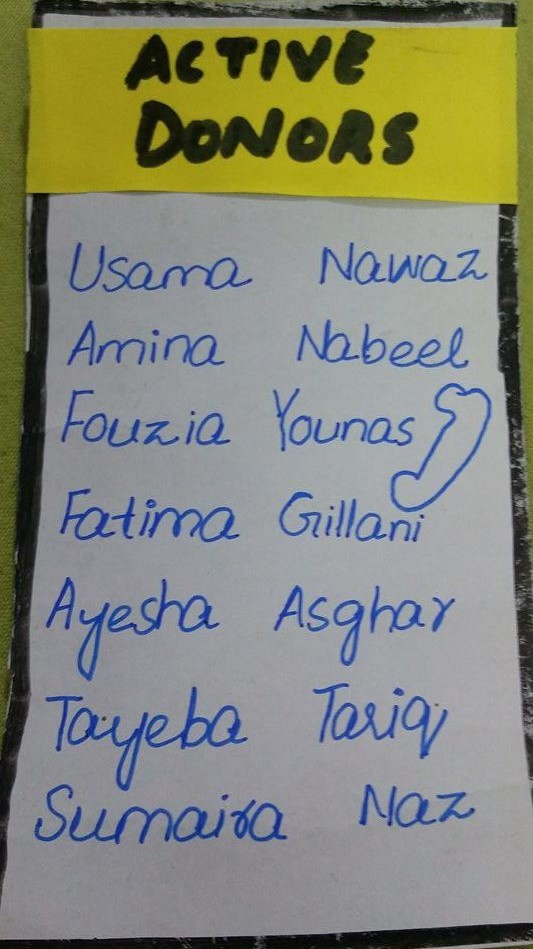 ACTIVE
DONORS
Usama Nawaz
Amina Nabeel
Fouzia Younas
Fatima Gillani
Ayesha Asghar
Tayeba Tariq
Sumaira Naz